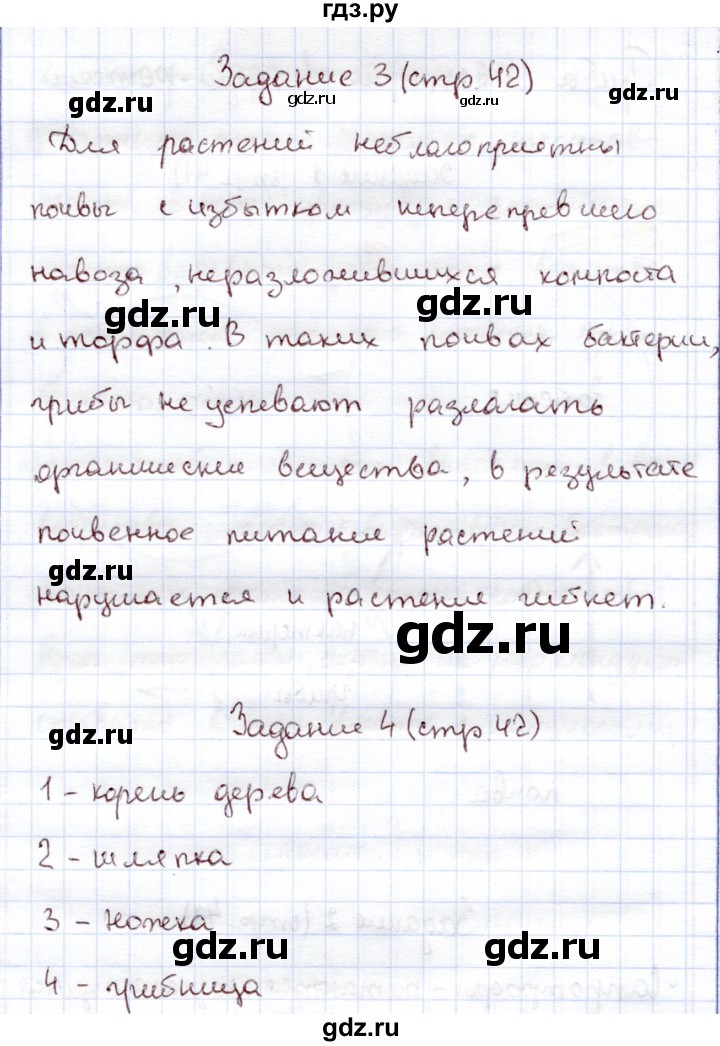 гдз.ру
Задание 3 (стр 42)
gdz.ru gdz.ru gdz.ru
Для растений неблагоприятны
почвы с избытком неперепревшего
навоза, неразложившихся компоста
gdz.ru gdz.ru
и торфа. В таких почвах бактерии,
грибы не успевают разлагать
органические вещества, в результате
почвенное питание растений
gdz.ru
нарушается и растение гибнет.
gdz.ru
Задание 4 (стр 42)
gdz.ru
1 - корень дерева
2 - шляпка
3 - ножка
gdz.ru gdz.ru
4 - грибница
gdz.ru